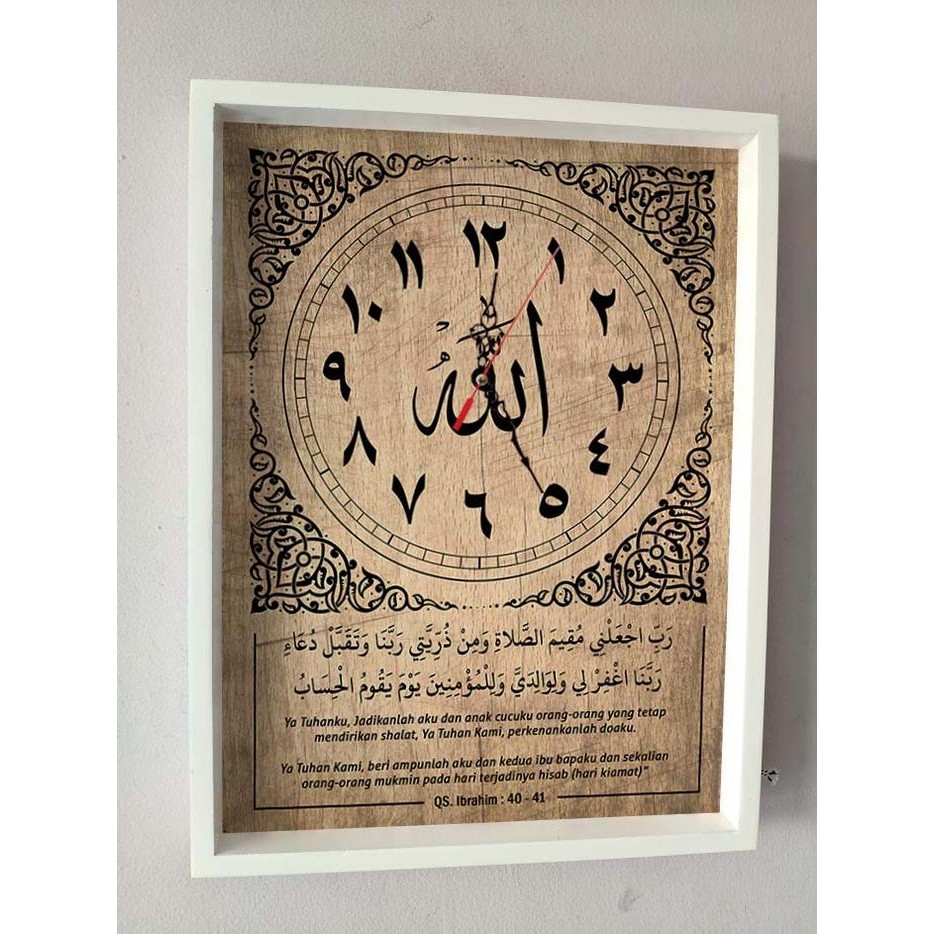 ١٢
١
٢
٣
٤
٥
٦
٧
٨
٩
١٠
١١
الله
رَبِّ اجْعَلْنِي مُقِيمَ الصَّلَاةِ وَمِنْ ذُرِّيَّتِي رَبَّنَا وَتَقَبَّلْ دُعَاءِ
رَبَّنَا اغْفِرْ لِي وَلِوَالِدَيَّ وَلِلْمُؤْمِنِينَ يَوْمَ يَقُومُ الْحِسَابُ
Ya Tuhanku, Jadikanlah aku dan anak cucuku orang-orang yang tetap
mendirikan shalat, Ya Tuhan Kami, perkenankanlah doaku.
Ya Tuhan Kami, beri ampunlah aku dan kedua ibu bapaku dan sekalian
orang-orang mukmin pada hari terjadinya hisab (hari kiamat)"
QS. Ibrahim : 40 - 41